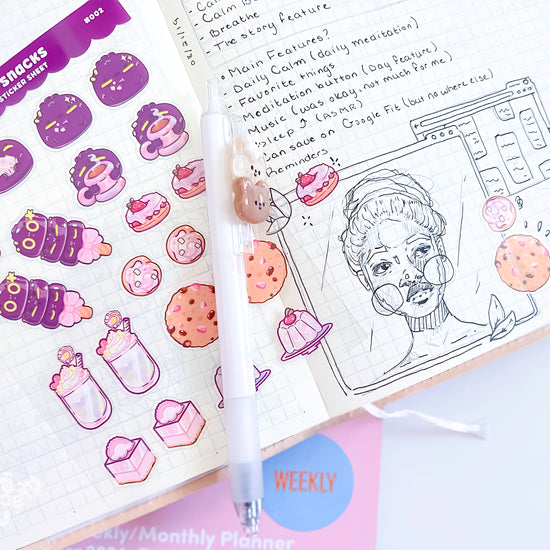 #002
snacks
STICKER SHEET
Calm
Breathe
- The story feature
• Main Features?
- Daily Calm (daily meditation)
- Favorite things
- Meditation button (Day feature)
Music (was okay, not much for me)
SLEEP ↑ (ASMR)
can save on Google Fit (but no where else)
Reminders
WEEKLY
kly/Monthly Planner